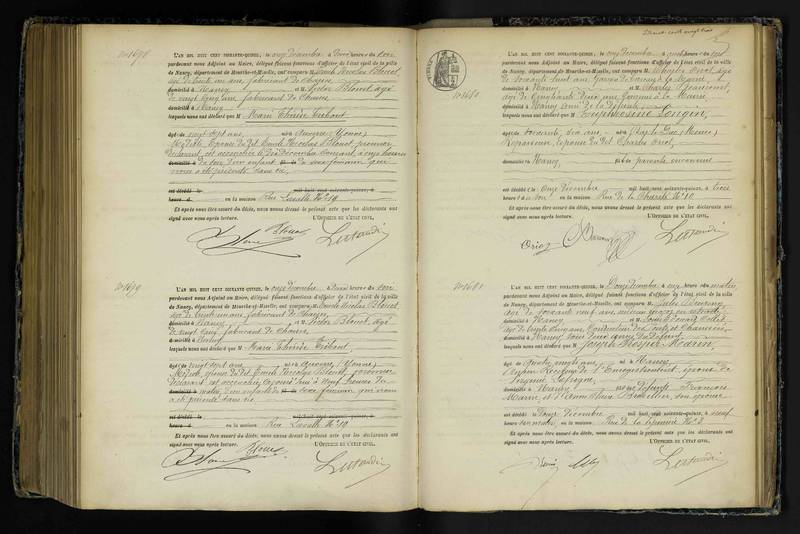 No 1678
L'AN MIL HUIT CENT SOIXANTE-QUINZE, le onze décembre à deux heures du soir
pardevant nous Adjoint au Maire, délégué faisant fonctions d'officier de l'état civil de la ville
de Nancy, département de Meurthe-et-Moselle, ont comparu M. Emile Nicolas Blouet
âgé de trente un ans, fabricant de chaises
domicilié à Nancy et M. Victor Blouet, âgé
de vingt cinq ans, fabricant de chaises
domicilié à Nancy
lesquels nous ont déclaré que M Marie
âgée de vingt sept ans, née à Auxerre (Yonne)
Modiste, épouse du dit Emile Nicolas Blouet, premier
déclarant, est accouchée le dix décembre courant, à onze heures
domicilié à du soir, d'un enfant de sexe féminin qui
nous a été présenté sans vie.
est décédé le mil huit cent soixante-quinze, à
heure d en la maison Rue Lavalle No 19
Et après nous être assuré du décès, nous avons dressé le présent acte que les déclarants ont
signé avec nous après lecture. L'OFFICIER DE L'ÉTAT CIVIL,
Blouet
No 1679
L'AN MIL HUIT CENT SOIXANTE-QUINZE, le onze décembre à deux heures du soir
pardevant nous Adjoint au Maire, délégué faisant fonctions d'officier de l'état civil de la ville
de Nancy, département de Meurthe-et-Moselle, ont comparu M. Emile Nicolas Blouet
âgé de trente un ans, fabricant de chaises,
domicilié à Nancy et M. Victor Blouet, âgé
de vingt cinq ans, fabricant de chaises
domicilié à Nancy
lesquels nous ont déclaré que M Marie
âgée de vingt sept ans née à Auxerre (Yonne)
Modiste, épouse du dit Emile Nicolas Blouet, premier
déclarant est accouchée, aujourd'hui à neuf heures du
domicilié à matin, d'un enfant de sexe féminin qui nous
a été présenté sans vie
est décédé le mil huit cent soixante-quinze, à
heure d en la maison Rue Lavalle No 19
Et après nous être assuré du décès, nous avons dressé le présent acte que les déclarants ont
signé avec nous après lecture. L'OFFICIER DE L'ÉTAT CIVIL,
Blouet
No 1680
L'AN MIL HUIT CENT SOIXANTE-QUINZE, le onze décembre à heures du soir
pardevant nous Adjoint au Maire, délégué faisant fonctions d'officier de l'état civil de la ville
de Nancy, département de Meurthe-et-Moselle, ont comparu M. Charles Oriot, âgé
de soixante huit ans, Garçon de bureau à la Mairie
domicilié à Nancy et M. Charles
âgé de cinquante deux ans, Garçon à la Mairie
domicilié à Nancy ami de la défunte
lesquels nous ont déclaré que M Euphrosine Longin,
âgée de soixante dix ans née à
épouse du dit Charles Oriot,
domiciliée à Nancy,
est décédée le onze décembre mil huit cent soixante-quinze, à trois
heures du soir en la maison Rue de la Charité No 10
Et après nous être assuré du décès, nous avons dressé le présent acte que les déclarants ont
signé avec nous après lecture. L'OFFICIER DE L'ÉTAT CIVIL,
Oriot
No 1681
L'AN MIL HUIT CENT SOIXANTE-QUINZE, le Douze décembre à onze heures du matin
pardevant nous Adjoint au Maire, délégué faisant fonctions d'officier de l'état civil de la ville
de Nancy, département de Meurthe-et-Moselle, ont comparu M. Jules
âgé de soixante neuf ans, ancien en retraite
domicilié à Nancy et M. Louis
âgé de trente cinq ans, Conducteur des Ponts et Chaussées
domicilié à Nancy, tous deux amis du défunt
lesquels nous ont déclaré que M Joseph Prosper Marin,
âgé de quatre vingts ans né à Nancy
Ancien Receveur de l'Enregistrement, époux de
domicilié à Nancy fils de défunts François
Marin, et d'Anne son épouse
est décédé le Douze décembre mil huit cent soixante-quinze, à neuf
heures du matin en la maison Rue de la No 3
Et après nous être assuré du décès, nous avons dressé le présent acte que les déclarants ont
signé avec nous après lecture. L'OFFICIER DE L'ÉTAT CIVIL,